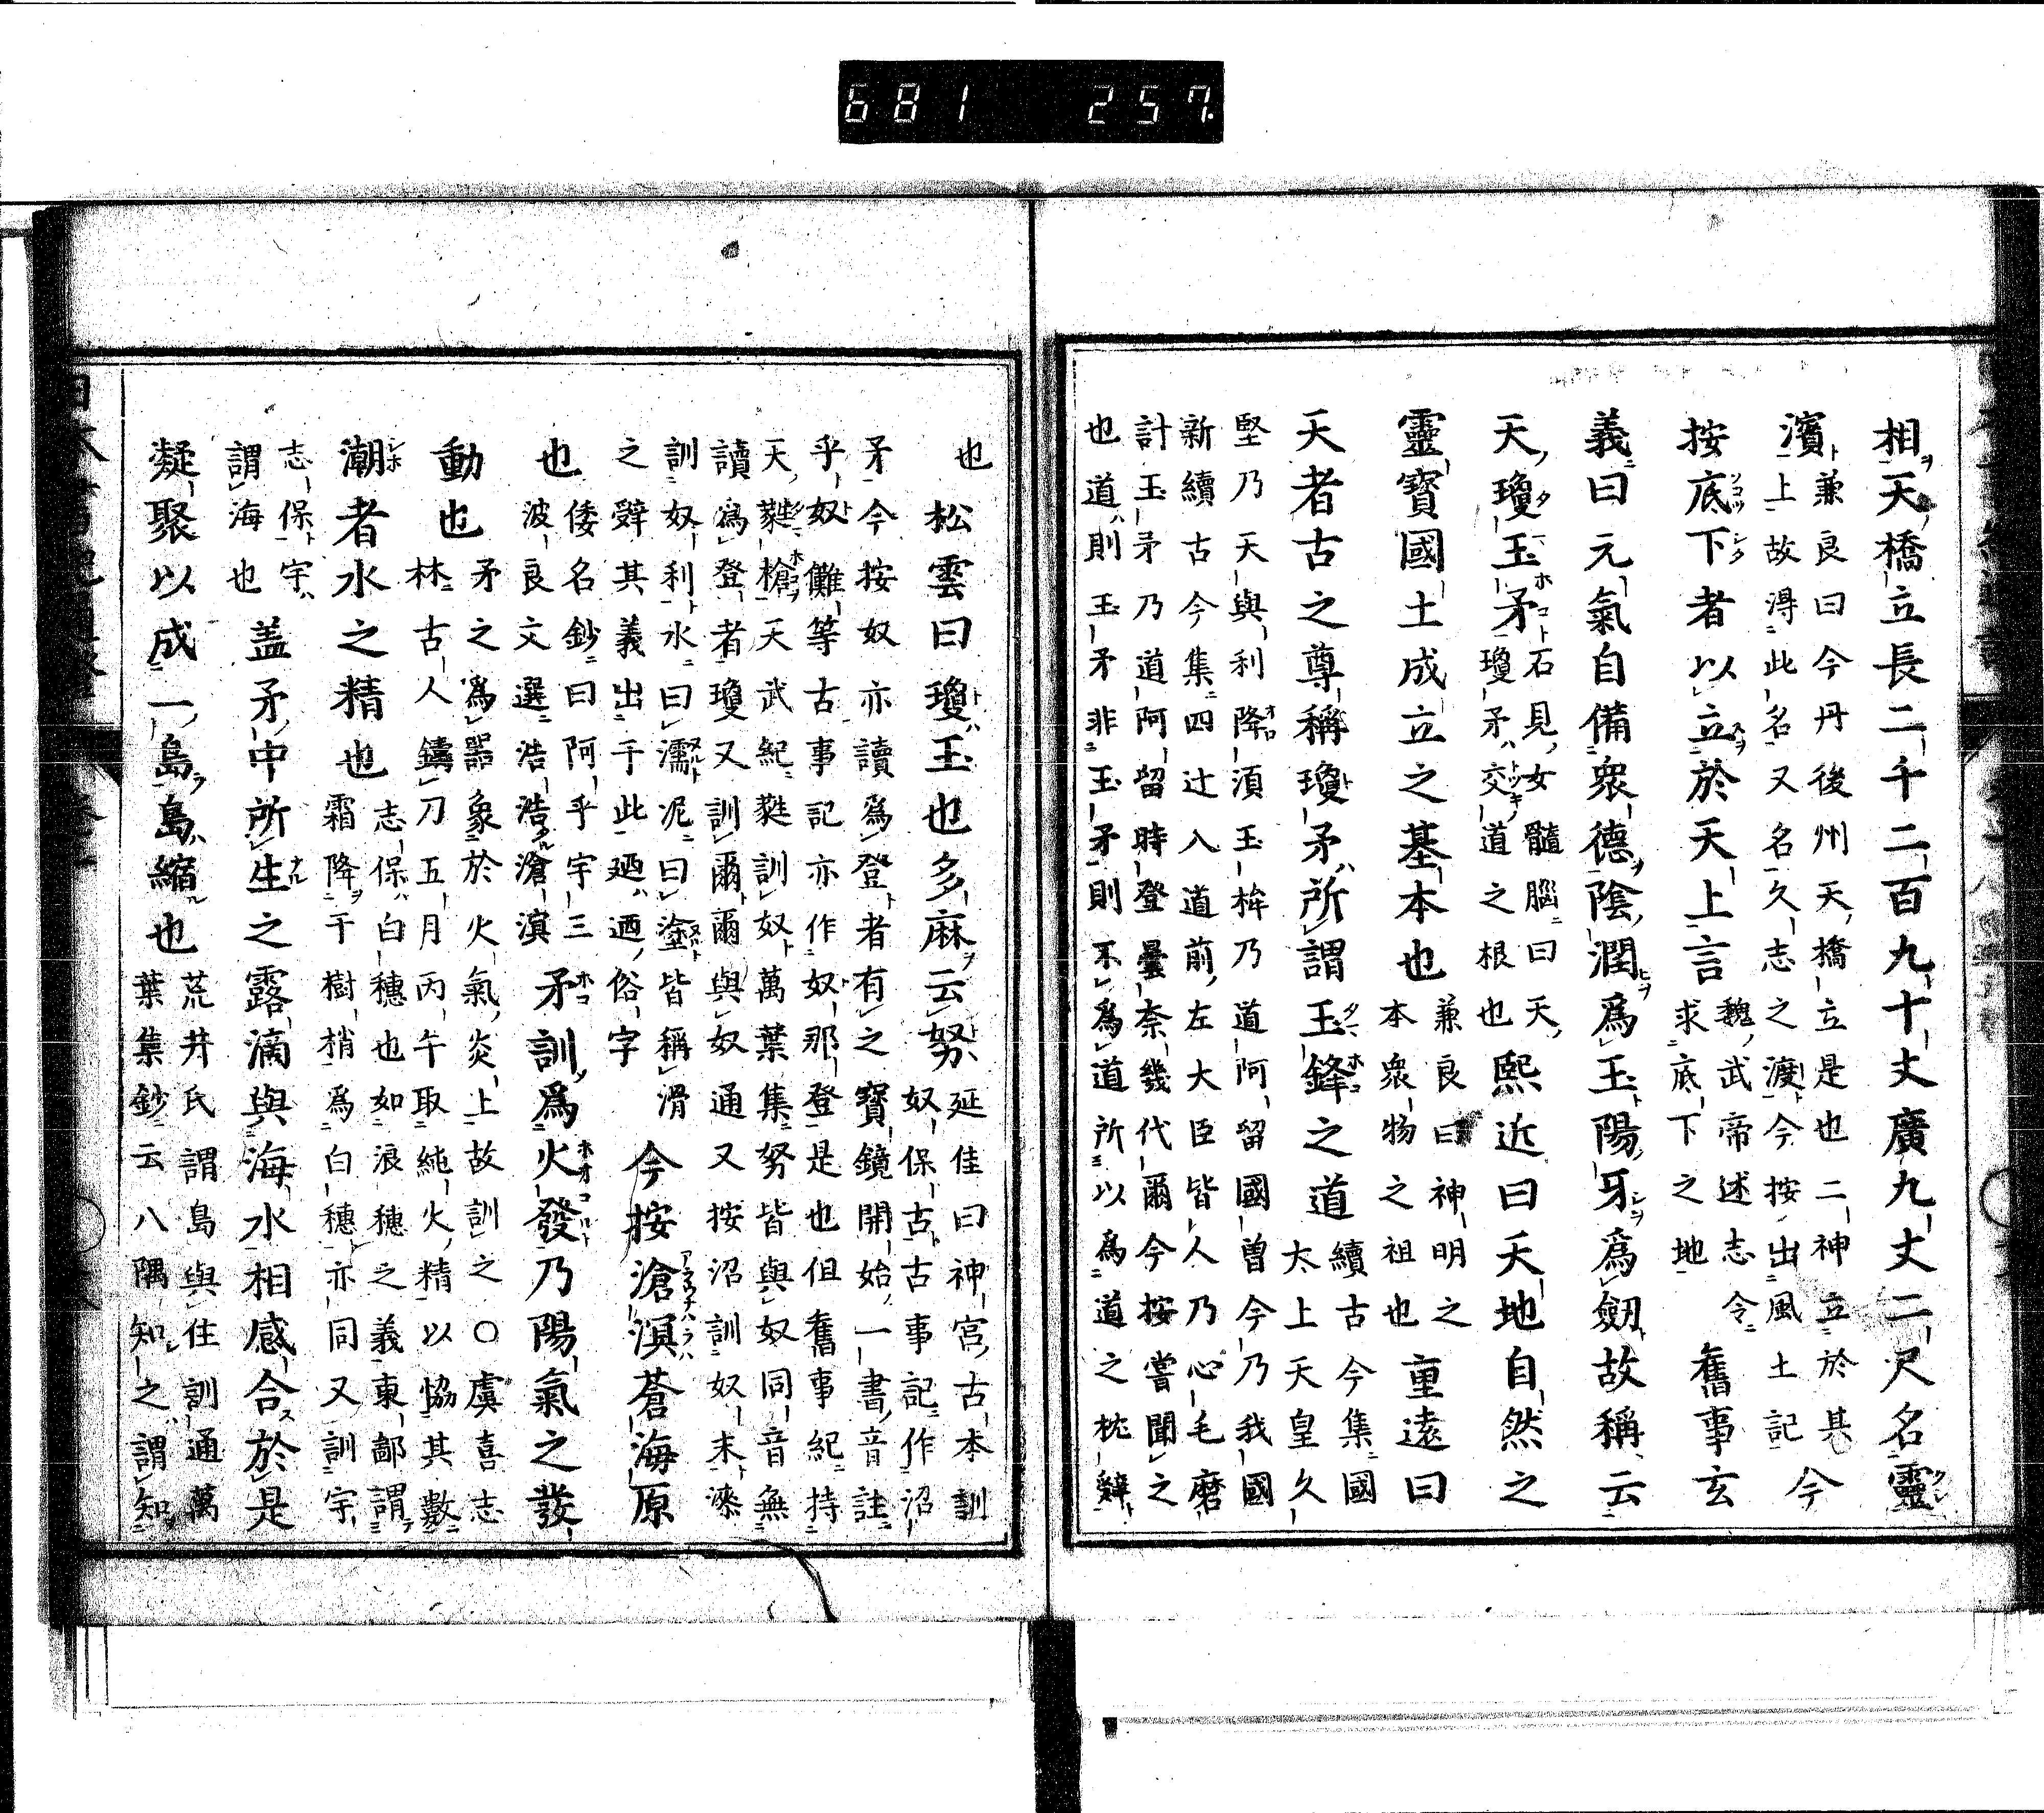 681 257
相天橋立長二千二百九十丈廣九丈二尺名靈
濱兼良曰今丹後州天橋立是也二神立於其
上故得此名又名久志之渡今按出風土記今
按底下者以立於天上言魏武帝述志令
求底下之地舊事玄
義曰元氣自備衆德陰潤爲玉陽牙爲劔故稱云
天瓊玉矛石見女髓腦曰天
瓊矛交道之根也熙近曰天地自然之
靈寶國土成立之基本也兼良曰神明之
本衆物之祖也重遠曰
天者古之尊稱瓊矛所謂玉鋒之道續古今集國
太上天皇久
堅乃天與利降須玉桙乃道阿留國曽今乃我國
新續古今集四辻入道前左大臣皆人乃心毛磨
計玉矛乃道阿留時登曇奈幾代爾今按嘗聞之
也道則玉矛非玉矛則不爲道所以爲道之枕辭
也
松雲曰瓊玉也多麻云努延佳曰神宮古本訓
奴保古古事記作沼
矛今按奴亦讀爲登者有之寶鏡開始一書音註
乎奴儺等古事記亦作奴那登是也但舊事紀持
天蕤槍天武紀蕤訓奴萬葉集努皆與奴同音無
讀爲登者瓊又訓爾爾與奴通又按沼訓奴末滌
訓奴利水曰濡泥曰塗皆稱滑
之辭其義出于此廼迺俗字今按滄溟蒼海原
也倭名鈔曰阿乎宇三
波良文選浩浩滄溟矛訓爲火發乃陽氣之發
動也矛之爲器象於火氣炎上故訓之〇虞喜志
林古人鑄刀五月丙午取純火精以協其數
潮者水之精也志保白穗也如浪穗之義東鄙謂
霜降干樹梢爲白穗亦同又訓宇
志保宇
謂海也盖矛中所生之露滴與海水相感合於是
凝聚以成一島島縮也荒井氏謂島與住訓通萬
葉集鈔云八隅知之謂知